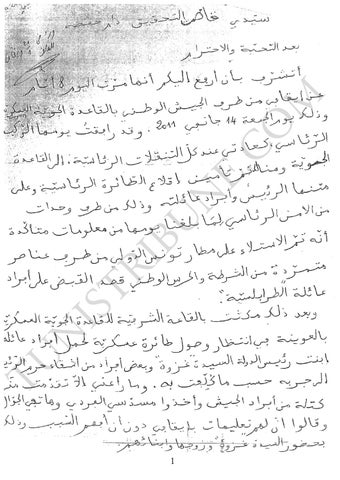 سيدي قاضي التحقيق دام حفظه
بعد التحية والاحترام
أتشرف بأن أرفع إليكم أنها مرت اليوم 8 أيام
عن إيقافي من طرف الجيش الوطني بالقاعدة الجوية العسكرية
وذلك يوم الجمعة 14 جانفي 2011. وقد رافقت يومها الركب
الرئاسي كعادتي عند كل التنقلات الرئاسية إلى القاعدة
الجوية ومنها تم تأمين إقلاع الطائرة الرئاسية وعلى
متنها الرئيس وأفراد عائلته وذلك من طرف وحدات
من الأمن الرئاسي لما بلغنا يومها من معلومات متأكدة
أنه تم الاستيلاء على مطار تونس الدولي من طرف عناصر
متمردة من الشرطة والحرس الوطني قصد القبض على أفراد
عائلة الطرابلسية.
وبعد ذلك مكثت بالقاعة الشرفية للقاعدة الجوية العسكرية
بالعوينة في انتظار وصول طائرة عسكرية لحمل أفراد عائلة
ابنت رئيس الدولة السيدة غزوة وبعض أفراد من أشقاء حرم الرئيس
إلى جربة حسب ما كلفت به. وما راعني إلا تقدمت مني
كتلة من أفراد الجيش وأخذوا مسدسي الفردي وهاتفي الجوال
وقالوا أن لهم تعليمات بإيقافي دون أن أفهم السبب وذلك
بحضور السيدة غزوة وزوجها وأبنائهم.
1
TUNISTRIBUNE.COM